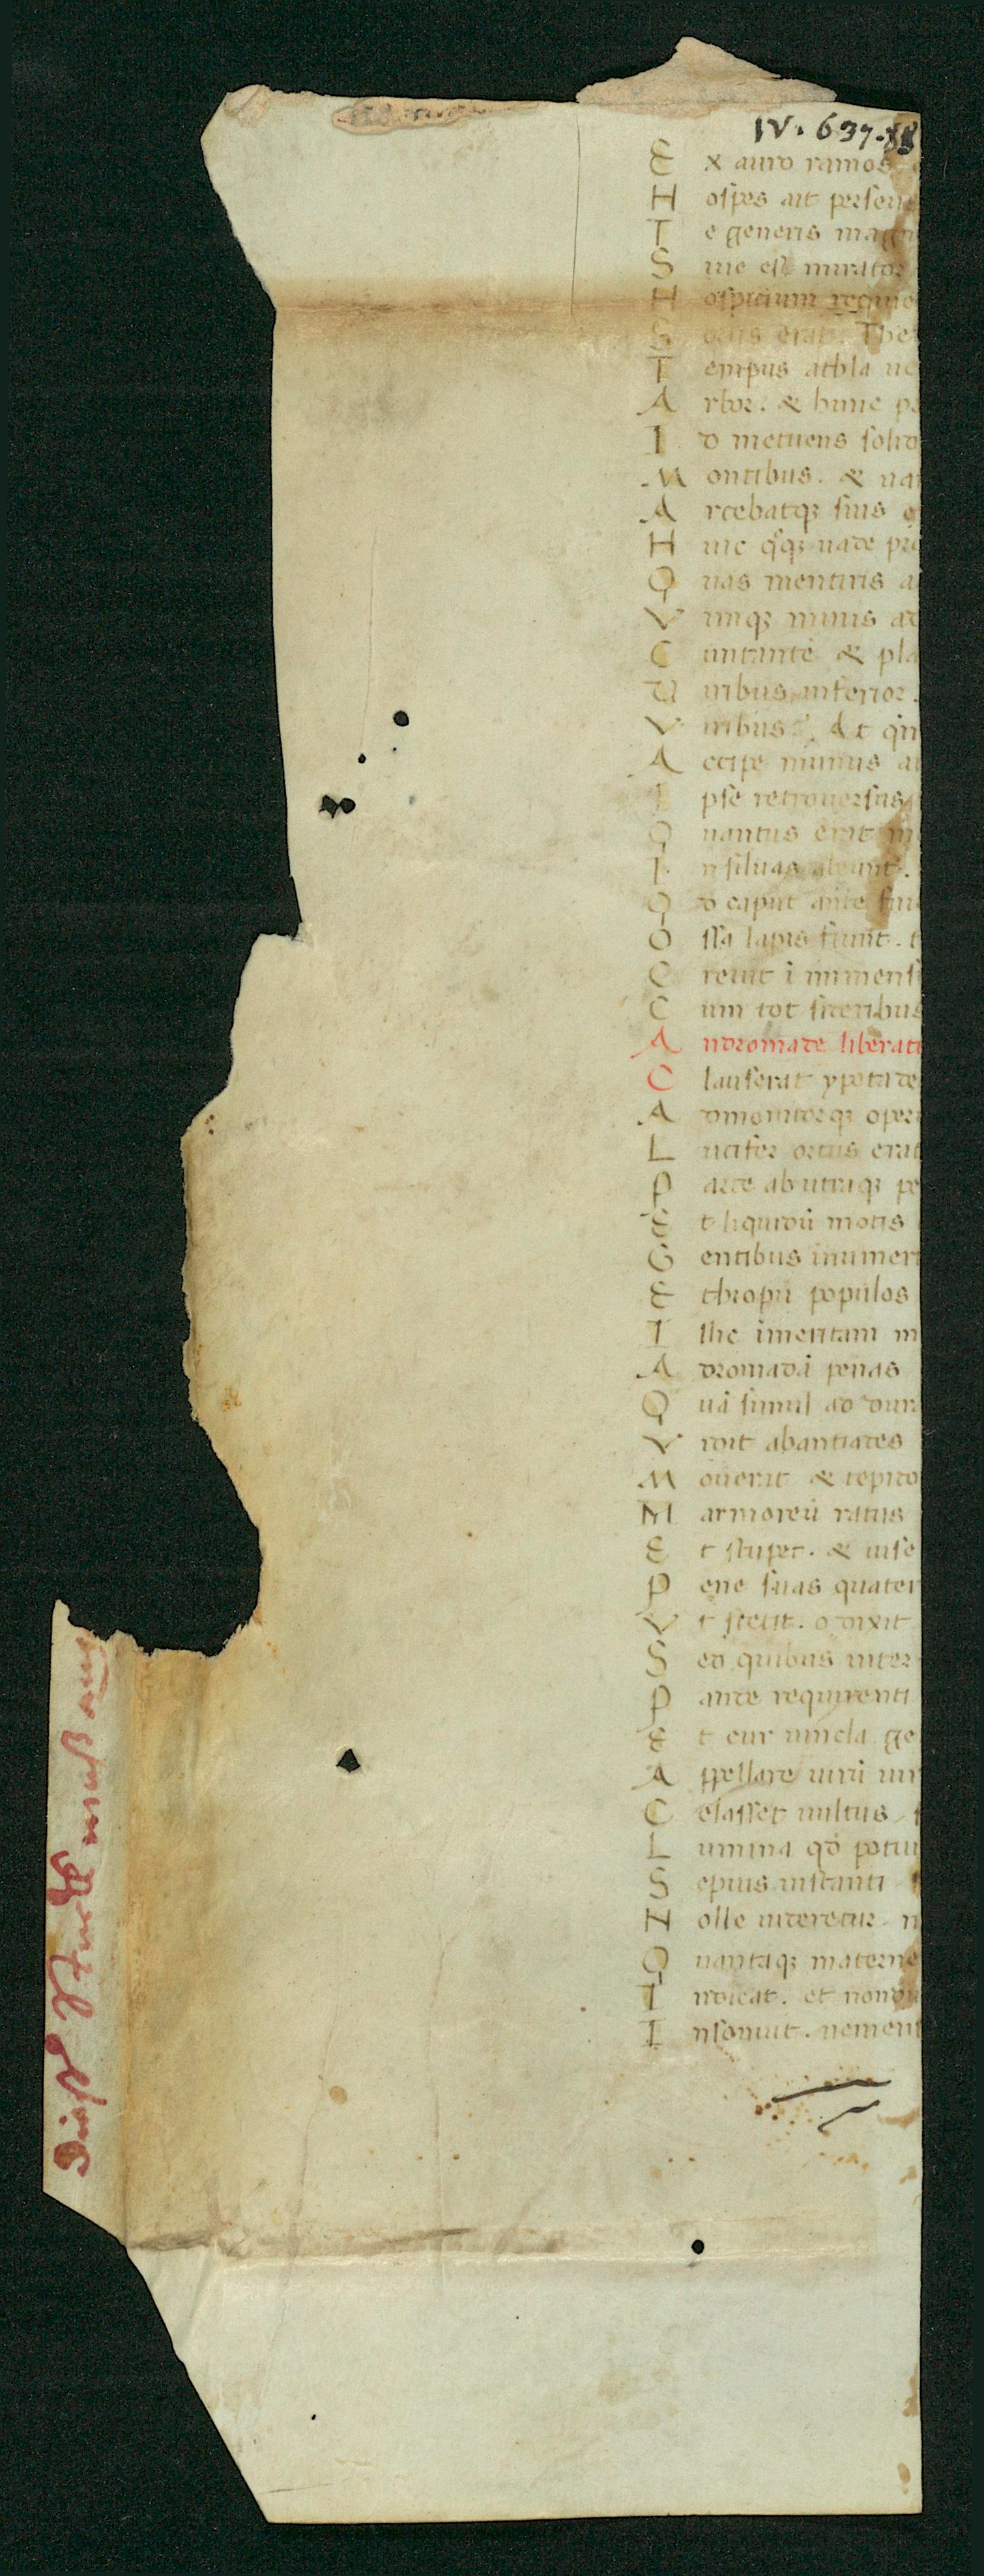 IV. 637-88
E x auro ramos
H ospes ait perseus
T e generis magn
S iue es mirator
H ospitium requie
S
T empus athla ue
A rbor. & hunc p
I d metuens solid
M ontibus. & ua
A rcebatq; suis
H uic q̊q; uade pro
Q uas mentiris a
V imq; minis ad
C untantē & pla
U iribus inferior.
V iribus. At qm
A ccipe munus ai
I pse retrouersus
Q uantus erit m
I n siluas abeunt.
Q d caput ante fui
O ssa lapis fiunt. t
C reuit ī immens
C um tot sideribus
A ndromade liberati
C lauserat ypotade
A dmonitorq; oper
L ucifer ortus erat
P arte ab utraq; pe
E t liquidū motis
G entibus inumer
E thiopū populos
I llic imeritam m
A dromadā penas
Q uā simul ad dur
V idit abantiades
M ouerit & tepido
M armoreū ratus
E t stupet. & uise
P ene suas quater
V t stetit. o dixit
S ed quibus inter
P ande requirenti
E t cur uincla ge
A ppellare uirū uir
C elasset uultus
L umina qd potui
S epius instanti
N olle uideretur. n
Q uantaq; materne
I ndicat. et nondu
I nsonuit. ueniens